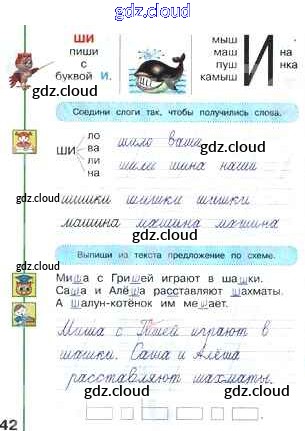 gdz.cloud
ШИ
пиши
с
буквой И.
gdz.cloud
мыш
маш
пуш
камыш
И
на
нка
gdz.cloud
Соедини слоги так, чтобы получились слова.
gdz.cloud
ШИ
ло
ва
ли
на
шило ваши
шили шина наши
gdz.cloud
шишки шишки шишки
gdz.cloud
машина машина машина
gdz.cloud
Выпиши из текста предложение по схеме.
gdz.cloud
Миша с Гришей играют в шашки.
Саша и Алёша расставляют шахматы.
А Шалун-котёнок им мешает.
gdz.cloud
Миша с Гришей играют в
шашки. Саша и Алёша
gdz.cloud
расставляют шахматы.
42
gdz.cloud